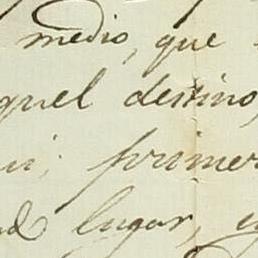 medio, que
quel destino,
primer
lugar, y